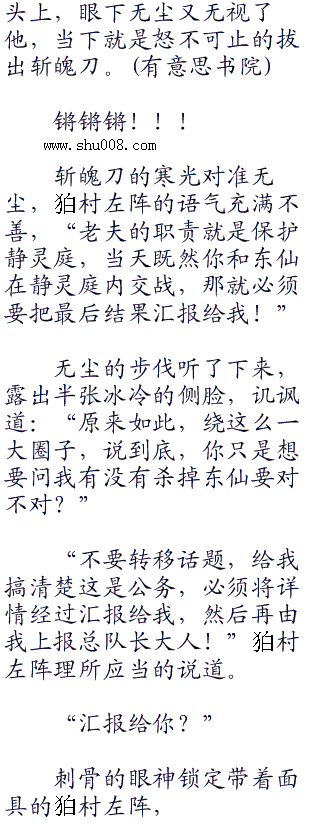 头上，眼下无尘又无视了
他，当下就是怒不可止的拔
出斩魄刀。(有意思书院)
锵锵锵！！！
www.shu008.com
斩魄刀的寒光对准无
尘，狛村左阵的语气充满不
善，“老夫的职责就是保护
静灵庭，当天既然你和东仙
在静灵庭内交战，那就必须
要把最后结果汇报给我！”
无尘的步伐听了下来，
露出半张冰冷的侧脸，讥讽
道：“原来如此，绕这么一
大圈子，说到底，你只是想
要问我有没有杀掉东仙要对
不对？”
“不要转移话题，给我
搞清楚这是公务，必须将详
情经过汇报给我，然后再由
我上报总队长大人！”狛村
左阵理所应当的说道。
“汇报给你？”
刺骨的眼神锁定带着面
具的狛村左阵，